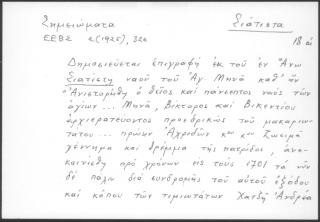 Σημειώματα
Σιάτιστα
ΕΕΒΣ 2 (1925), 326
18 α
Δημοσιεύεται ἐπιγραφή ἐκ τοῦ ἐν Ἄνω
Σιατίστῃ ναοῦ τοῦ Ἁγ. Μηνᾶ καθ' ἥν
"Ἀνιστορήθη ὁ θεῖος καί πάνσεπτο ναός τῶν
ἁγίων ... Μηνᾶ, Βίκτορος καί Βικεντίου
ἀρχιερατεύοντος προεδρικῶς τοῦ μακαριω-
τάτου ... πρώην Ἀχριδῶν κου κου Ζωσιμᾶ
γέννημα καί θρέμμα τῆς πατρίδος, ἀνε-
καινίσθη πρό χρόνων εἰς τούς 1701 τά νῦν
δέ πάλιν διά συνδρομῆς τοῦ αὐτοῦ ἐξόδου
καί κόπου τῶν τιμιωτάτων Χατζῆ Ἀνδρέα